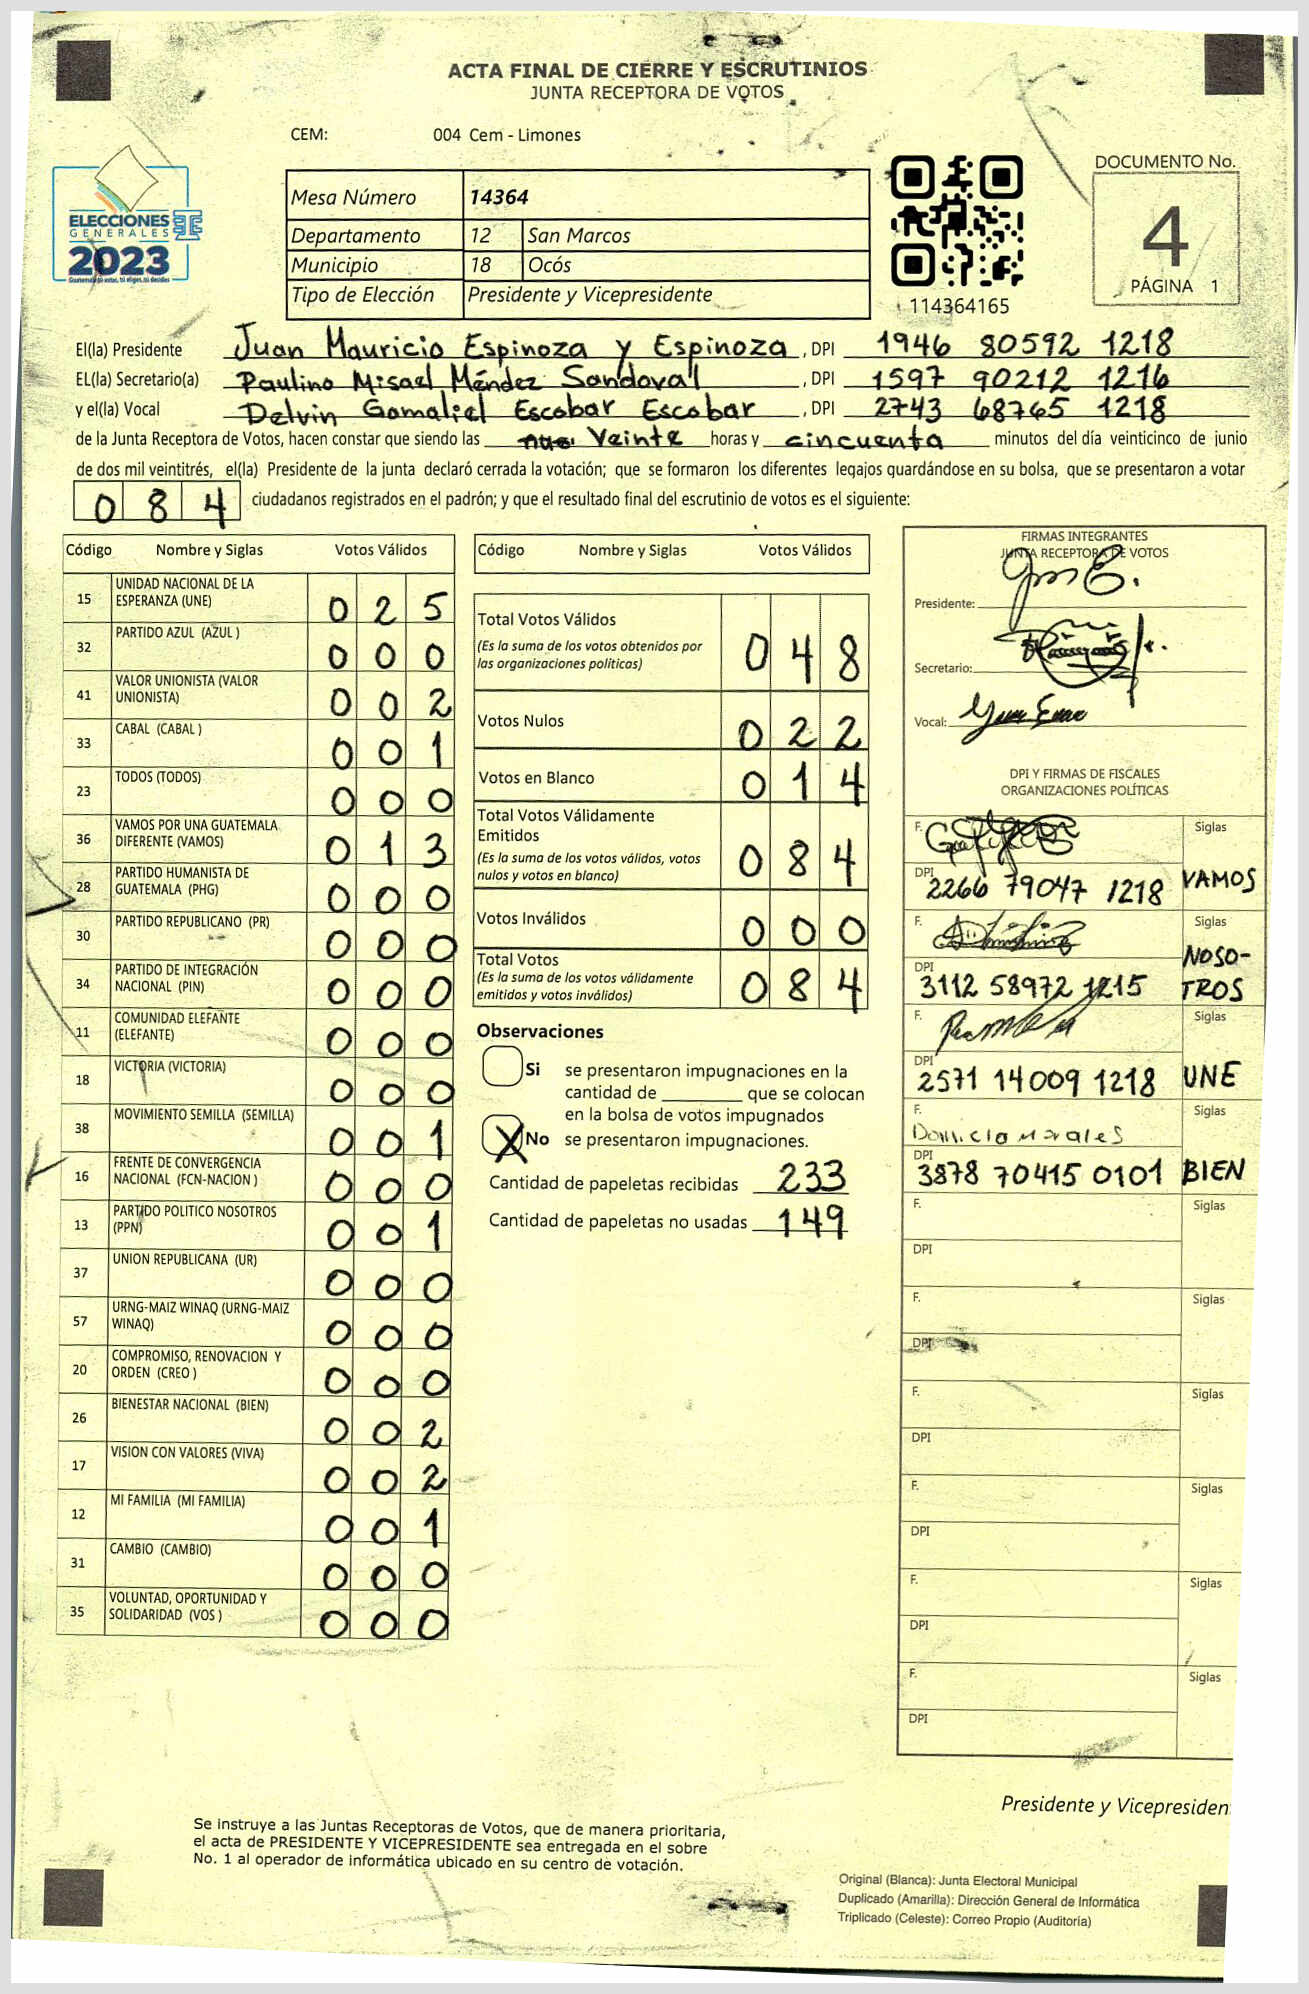 ACTA FINAL DE CIERRE Y ESCRUTINIOS
JUNTA RECEPTORA DE VOTOS
CEM: 004 Cem - Limones
ELECCIONES
GENERALES
2023
Mesa Número 14364
Departamento 12 San Marcos
Municipio 18 Ocós
Tipo de Elección Presidente y Vicepresidente
114364165
DOCUMENTO No.
4
PÁGINA 1
El(la) Presidente Juan Mauricio Espinoza y Espinoza, DPI 1946 80592 1218
EL(la) Secretario(a) Paulino Misael Méndez Sandoval, DPI 1597 90212 1216
y el(la) Vocal Delvin Gamaliel Escobar Escobar, DPI 2743 68765 1218
de la Junta Receptora de Votos, hacen constar que siendo las Veinte horas y cincuenta minutos del día veinticinco de junio
de dos mil veintitrés, el(la) Presidente de la junta declaró cerrada la votación; que se formaron los diferentes legajos quardándose en su bolsa, que se presentaron a votar
084 ciudadanos registrados en el padrón; y que el resultado final del escrutinio de votos es el siguiente:
Código Nombre y Siglas Votos Válidos
15 UNIDAD NACIONAL DE LA
ESPERANZA (UNE) 025
32 PARTIDO AZUL (AZUL ) 000
41 VALOR UNIONISTA (VALOR
UNIONISTA) 002
33 CABAL (CABAL ) 001
23 TODOS (TODOS) 000
36 VAMOS POR UNA GUATEMALA
DIFERENTE (VAMOS) 013
28 PARTIDO HUMANISTA DE
GUATEMALA (PHG) 000
30 PARTIDO REPUBLICANO (PR) 000
34 PARTIDO DE INTEGRACIÓN
NACIONAL (PIN) 000
11 COMUNIDAD ELEFANTE
(ELEFANTE) 000
18 VICTORIA (VICTORIA) 000
38 MOVIMIENTO SEMILLA (SEMILLA) 001
16 FRENTE DE CONVERGENCIA
NACIONAL (FCN-NACION ) 000
13 PARTIDO POLITICO NOSOTROS
(PPN) 001
37 UNION REPUBLICANA (UR) 000
57 URNG-MAIZ WINAQ (URNG-MAIZ
WINAQ) 000
20 COMPROMISO, RENOVACION Y
ORDEN (CREO ) 000
26 BIENESTAR NACIONAL (BIEN) 002
17 VISION CON VALORES (VIVA) 002
12 MI FAMILIA (MI FAMILIA) 001
31 CAMBIO (CAMBIO) 000
35 VOLUNTAD, OPORTUNIDAD Y
SOLIDARIDAD (VOS ) 000
Código Nombre y Siglas Votos Válidos
Total Votos Válidos 048
(Es la suma de los votos obtenidos por
las organizaciones políticas)
Votos Nulos 022
Votos en Blanco 014
Total Votos Válidamente
Emitidos 084
(Es la suma de los votos válidos, votos
nulos y votos en blanco)
Votos Inválidos 000
Total Votos 084
(Es la suma de los votos válidamente
emitidos y votos inválidos)
Observaciones
Si se presentaron impugnaciones en la
cantidad de ________ que se colocan
en la bolsa de votos impugnados
X No se presentaron impugnaciones.
Cantidad de papeletas recibidas 233
Cantidad de papeletas no usadas 149
FIRMAS INTEGRANTES
JUNTA RECEPTORA DE VOTOS
Presidente:
Secretario:
Vocal:
DPI Y FIRMAS DE FISCALES
ORGANIZACIONES POLÍTICAS
F. Siglas
DPI 2266 79047 1218 VAMOS
F. Siglas
DPI 3112 58972 1215 NOSO-
TROS
F. Siglas
DPI 2571 14009 1218 UNE
F. Domicio Morales Siglas
DPI 3878 70415 0101 BIEN
F. Siglas
DPI
F. Siglas
DPI
F. Siglas
DPI
F. Siglas
DPI
F. Siglas
DPI
F. Siglas
DPI
Presidente y Vicepresiden
Se instruye a las Juntas Receptoras de Votos, que de manera prioritaria,
el acta de PRESIDENTE Y VICEPRESIDENTE sea entregada en el sobre
No. 1 al operador de informática ubicado en su centro de votación.
Original (Blanca): Junta Electoral Municipal
Duplicado (Amarilla): Dirección General de Informática
Triplicado (Celeste): Correo Propio (Auditoría)